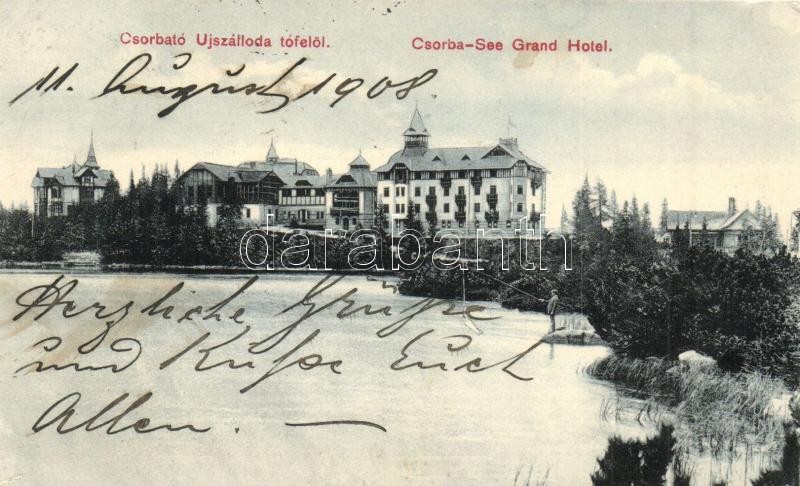 Csorbató Ujszálloda tófelöl.
Csorba-See Grand Hotel.
11. August 1908
darabanth
Herzliche Grüße
und Küße Euch
Allen. —